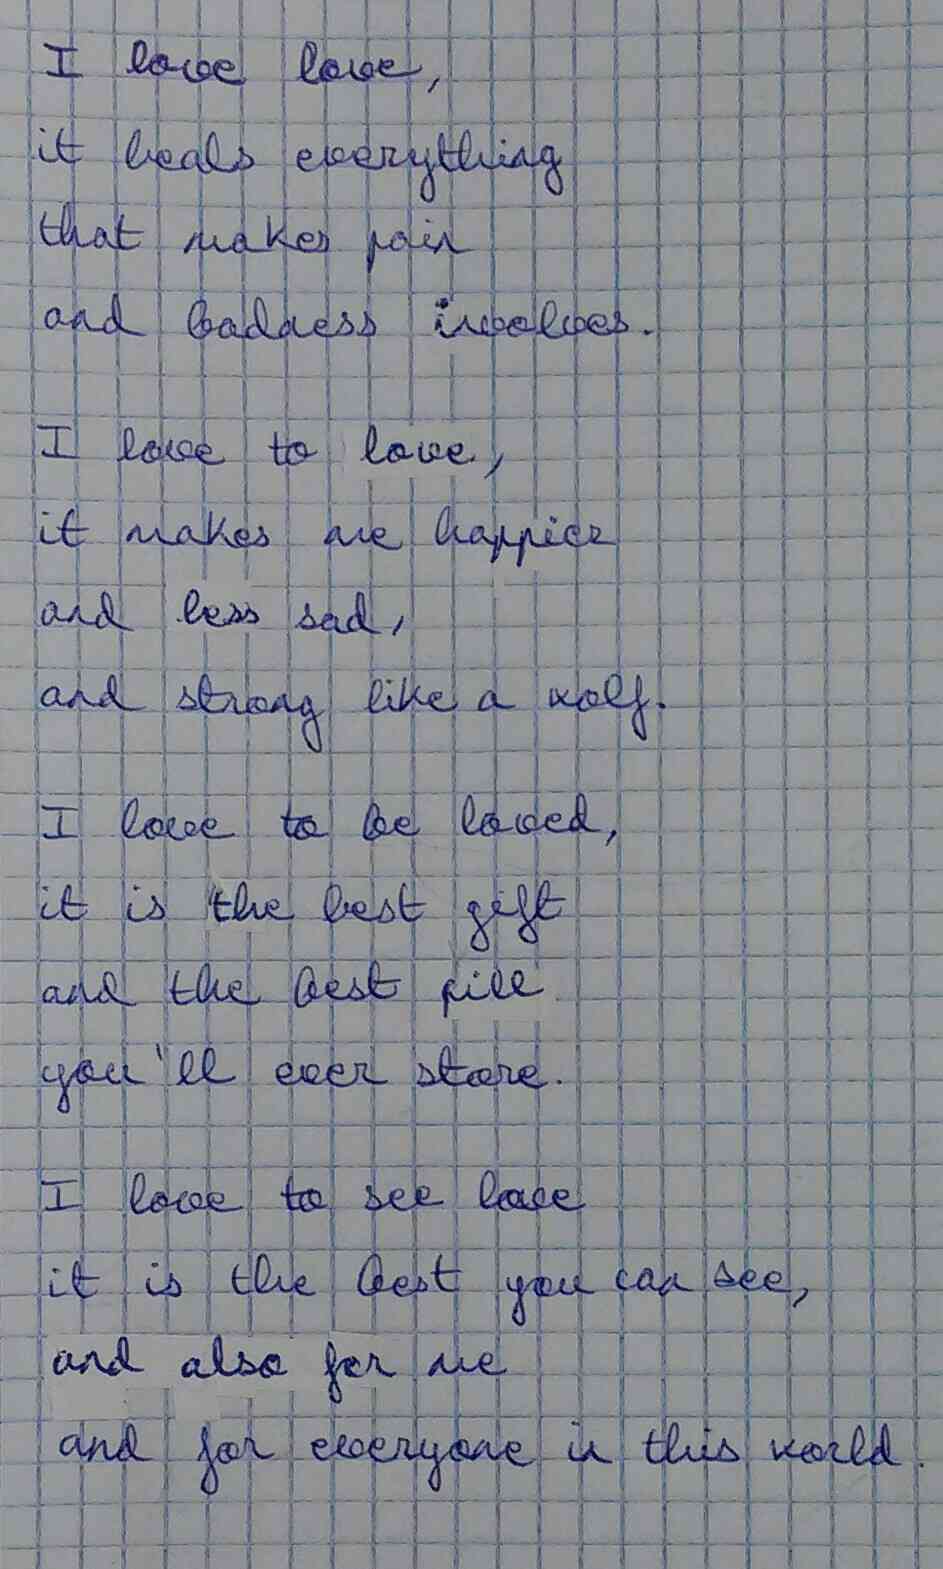 I love love,
it heals everything
that makes pain
and badness involves.
I love to love,
it makes me happier
and less sad,
and strong like a wolf.
I love to be loved,
it is the best gift
and the best pill
you'll ever store.
I love to see love
it is the best you can see,
and also for me
and for everyone in this world.